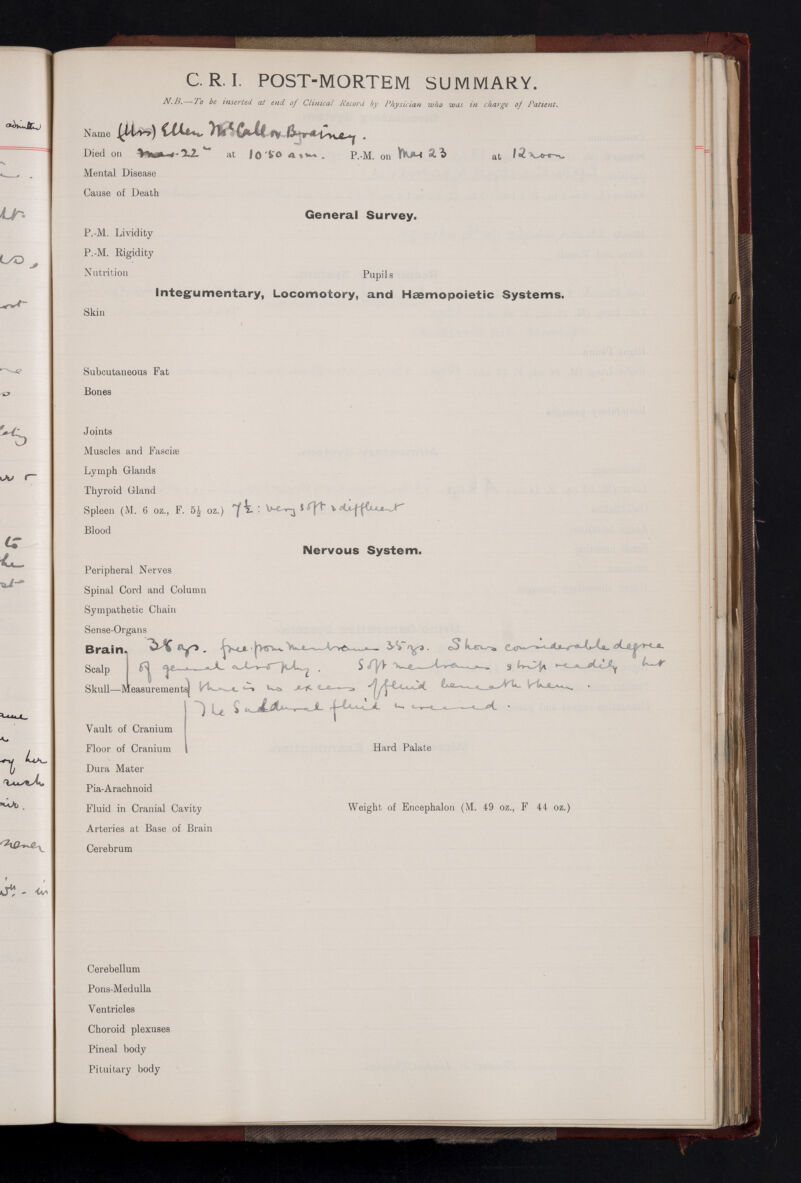 C. R. I. POST-MORTEM SUMMARY.
N.B.—To be inserted at end of Clinical Record by Physician who was in charge of Patient.
Name (Mrs) Ellen McCall or Brainey.
Died on Mar. 22 at 10.50 a.m. P.-M. on Mar 23 at 12 noon
Mental Disease
Cause of Death
General Survey.
P.-M. Lividity
P.-M. Rigidity
Nutrition Pupils
Integumentary, Locomotory, and Hæmopoietic Systems.
Skin
Subcutaneous Fat
Bones
Joints
Muscles and Fasciæ
Lymph Glands
Thyroid Gland
Spleen (M. 6 oz., F. 5½ oz.) 7½: very soft & diffluent
Blood
Nervous System.
Peripheral Nerves
Spinal Cord and Column
Sympathetic Chain
Sense-Organs
Brain. 38 ozs. free from membranes 35 ozs. Shows considerable degree
Scalp of general atrophy. Soft membranes strip readily but
Skull—Measurements there is no excess of fluid beneath them.
The Subdural fluid increased.
Vault of Cranium
Floor of Cranium Hard Palate
Dura Mater
Pia-Arachnoid
Fluid in Cranial Cavity Weight of Encephalon (M. 49 oz., F 44 oz.)
Arteries at Base of Brain
Cerebrum
Cerebellum
Pons-Medulla
Ventricles
Choroid plexuses
Pineal body
Pituitary body